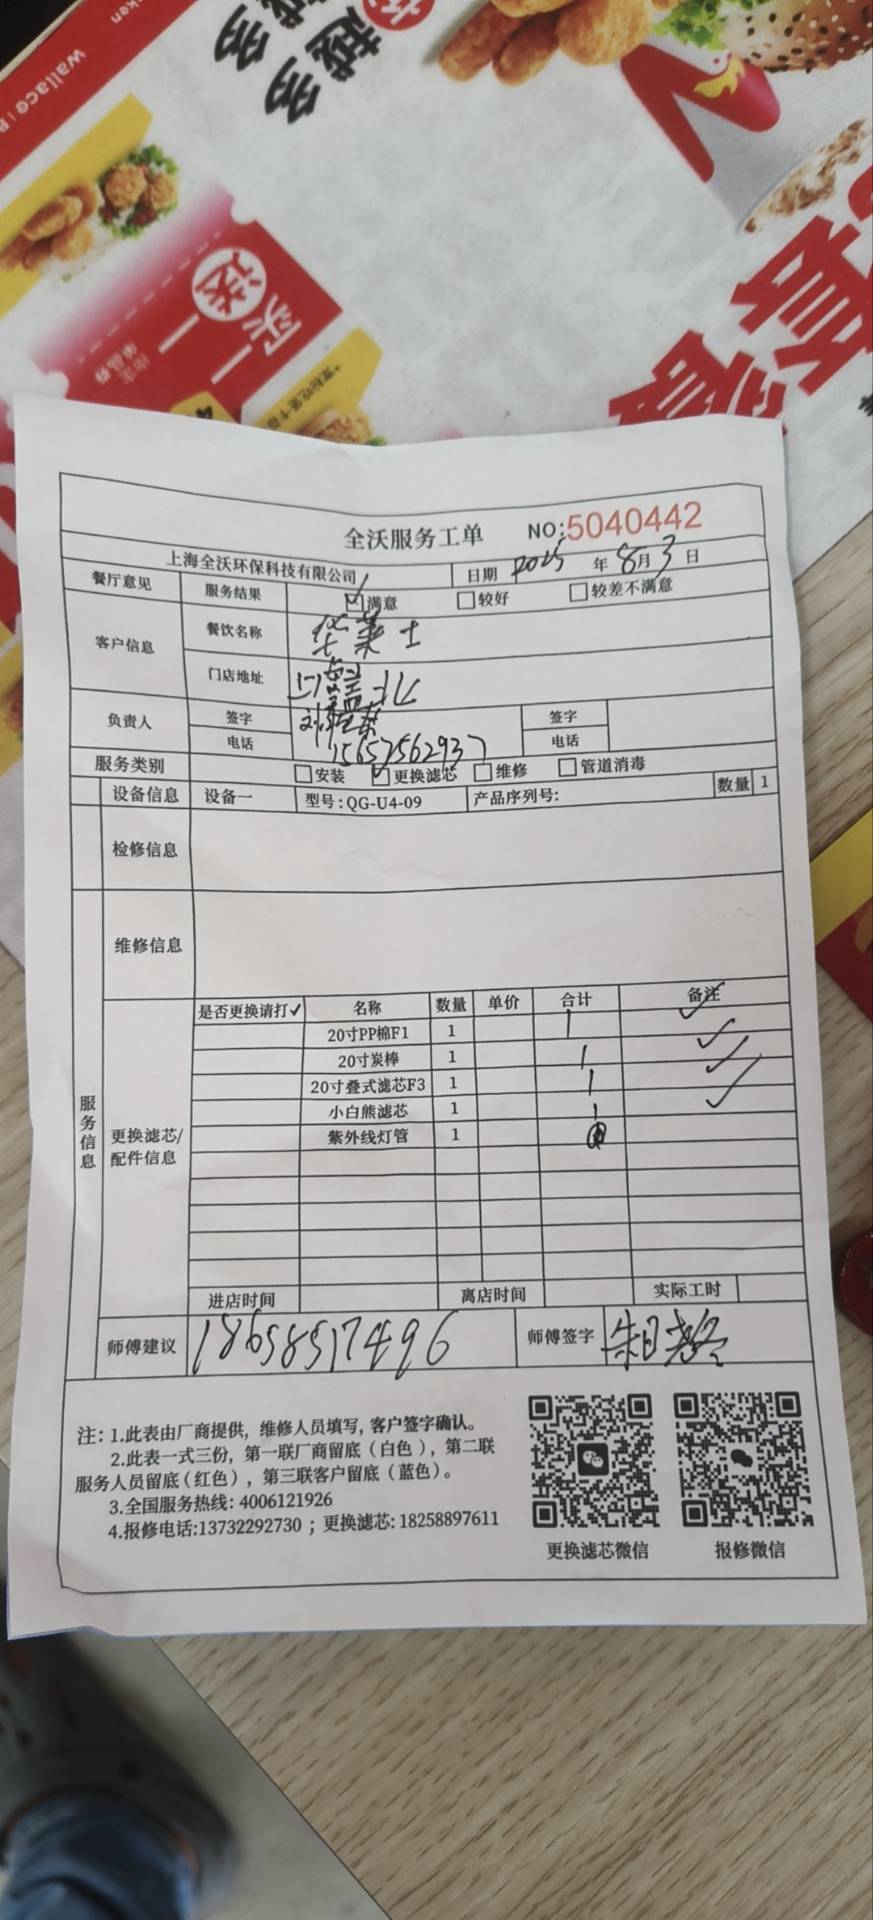 wallace
越多
越多
买一送一
全沃服务工单 NO:5040442
上海全沃环保科技有限公司 日期 2025 年 8月 3 日
餐厅意见 服务结果 ☑满意 □较好 □较差不满意
客户信息 餐饮名称 华莱士
门店地址 北
负责人 签字 签字
电话 15657562937 电话
服务类别 □安装 ☑更换滤芯 □维修 □管道消毒
设备信息 设备一 型号:QG-U4-09 产品序列号: 数量 1
检修信息
维修信息
服务信息
更换滤芯/配件信息
是否更换请打✓ 名称 数量 单价 合计 备注
20寸PP棉F1 1 1 ✓
20寸炭棒 1 1 ✓
20寸叠式滤芯F3 1 1 ✓
小白熊滤芯 1 1 ✓
紫外线灯管 1
进店时间 离店时间 实际工时
师傅建议 18658517496 师傅签字
注: 1.此表由厂商提供, 维修人员填写, 客户签字确认。
2.此表一式三份, 第一联厂商留底(白色), 第二联
服务人员留底(红色), 第三联客户留底(蓝色)。
3.全国服务热线: 4006121926
4.报修电话:13732292730 ; 更换滤芯: 18258897611
更换滤芯微信 报修微信